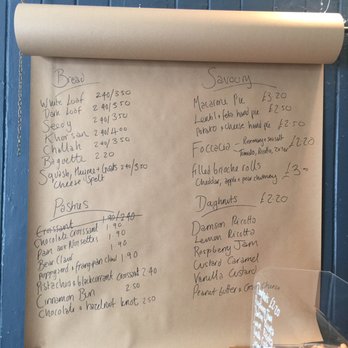 Bread
White Loaf 2.40/3.50
Dark Loaf 2.40/3.50
Seedy 2.40/3.50
Khorasan 2.80/4.00
Challah 2.40/3.50
Baguette 2.20
Squash, & Goats 2.40/3.50
Cheese Spelt
Pastries
Croissant 1.90/2.40
Chocolate Croissant 1.90
Pain aux Noisettes 1.90
Bear Claw 1.90
Poppyseed & frangipan 1.90
Pistachio & blackcurrant croissant 2.40
Cinnamon Bun 2.50
Chocolate & hazelnut knot 2.50
Savoury
Macaroni Pie £3.20
& feta hand pie £2.50
Potato & cheese hand pie £2.50
Foccacia - Rosemary & sea salt £2.20
Tomato, Ricotta,
filled brioche rolls £3.
Cheddar, apple & pear chutney
Doughnuts £2.20
Damson Ricotta
Lemon Ricotta
Raspberry Jam
Custard Caramel
Vanilla Custard
Peanut butter &